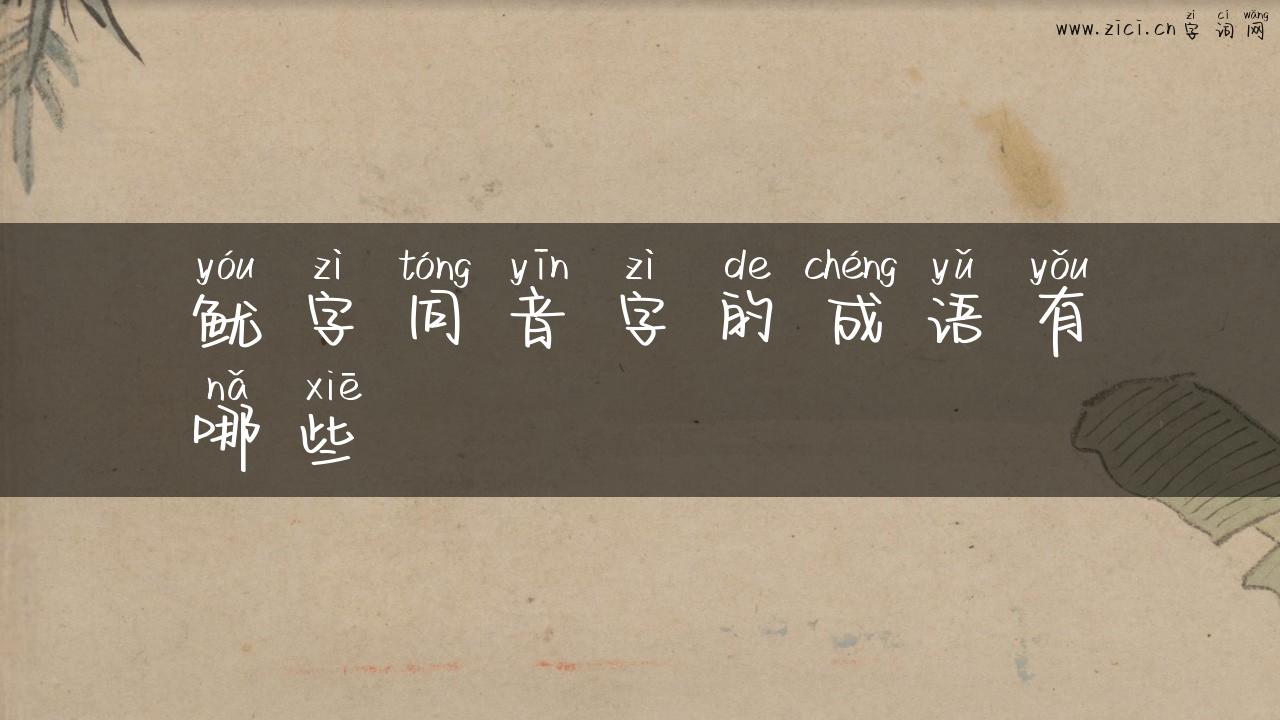 zì cí wǎng
www.zici.cn 字词网
yóu zì tóng yīn zì de chéng yǔ yǒu
鱿字同音字的成语有
nǎ xiē
哪些